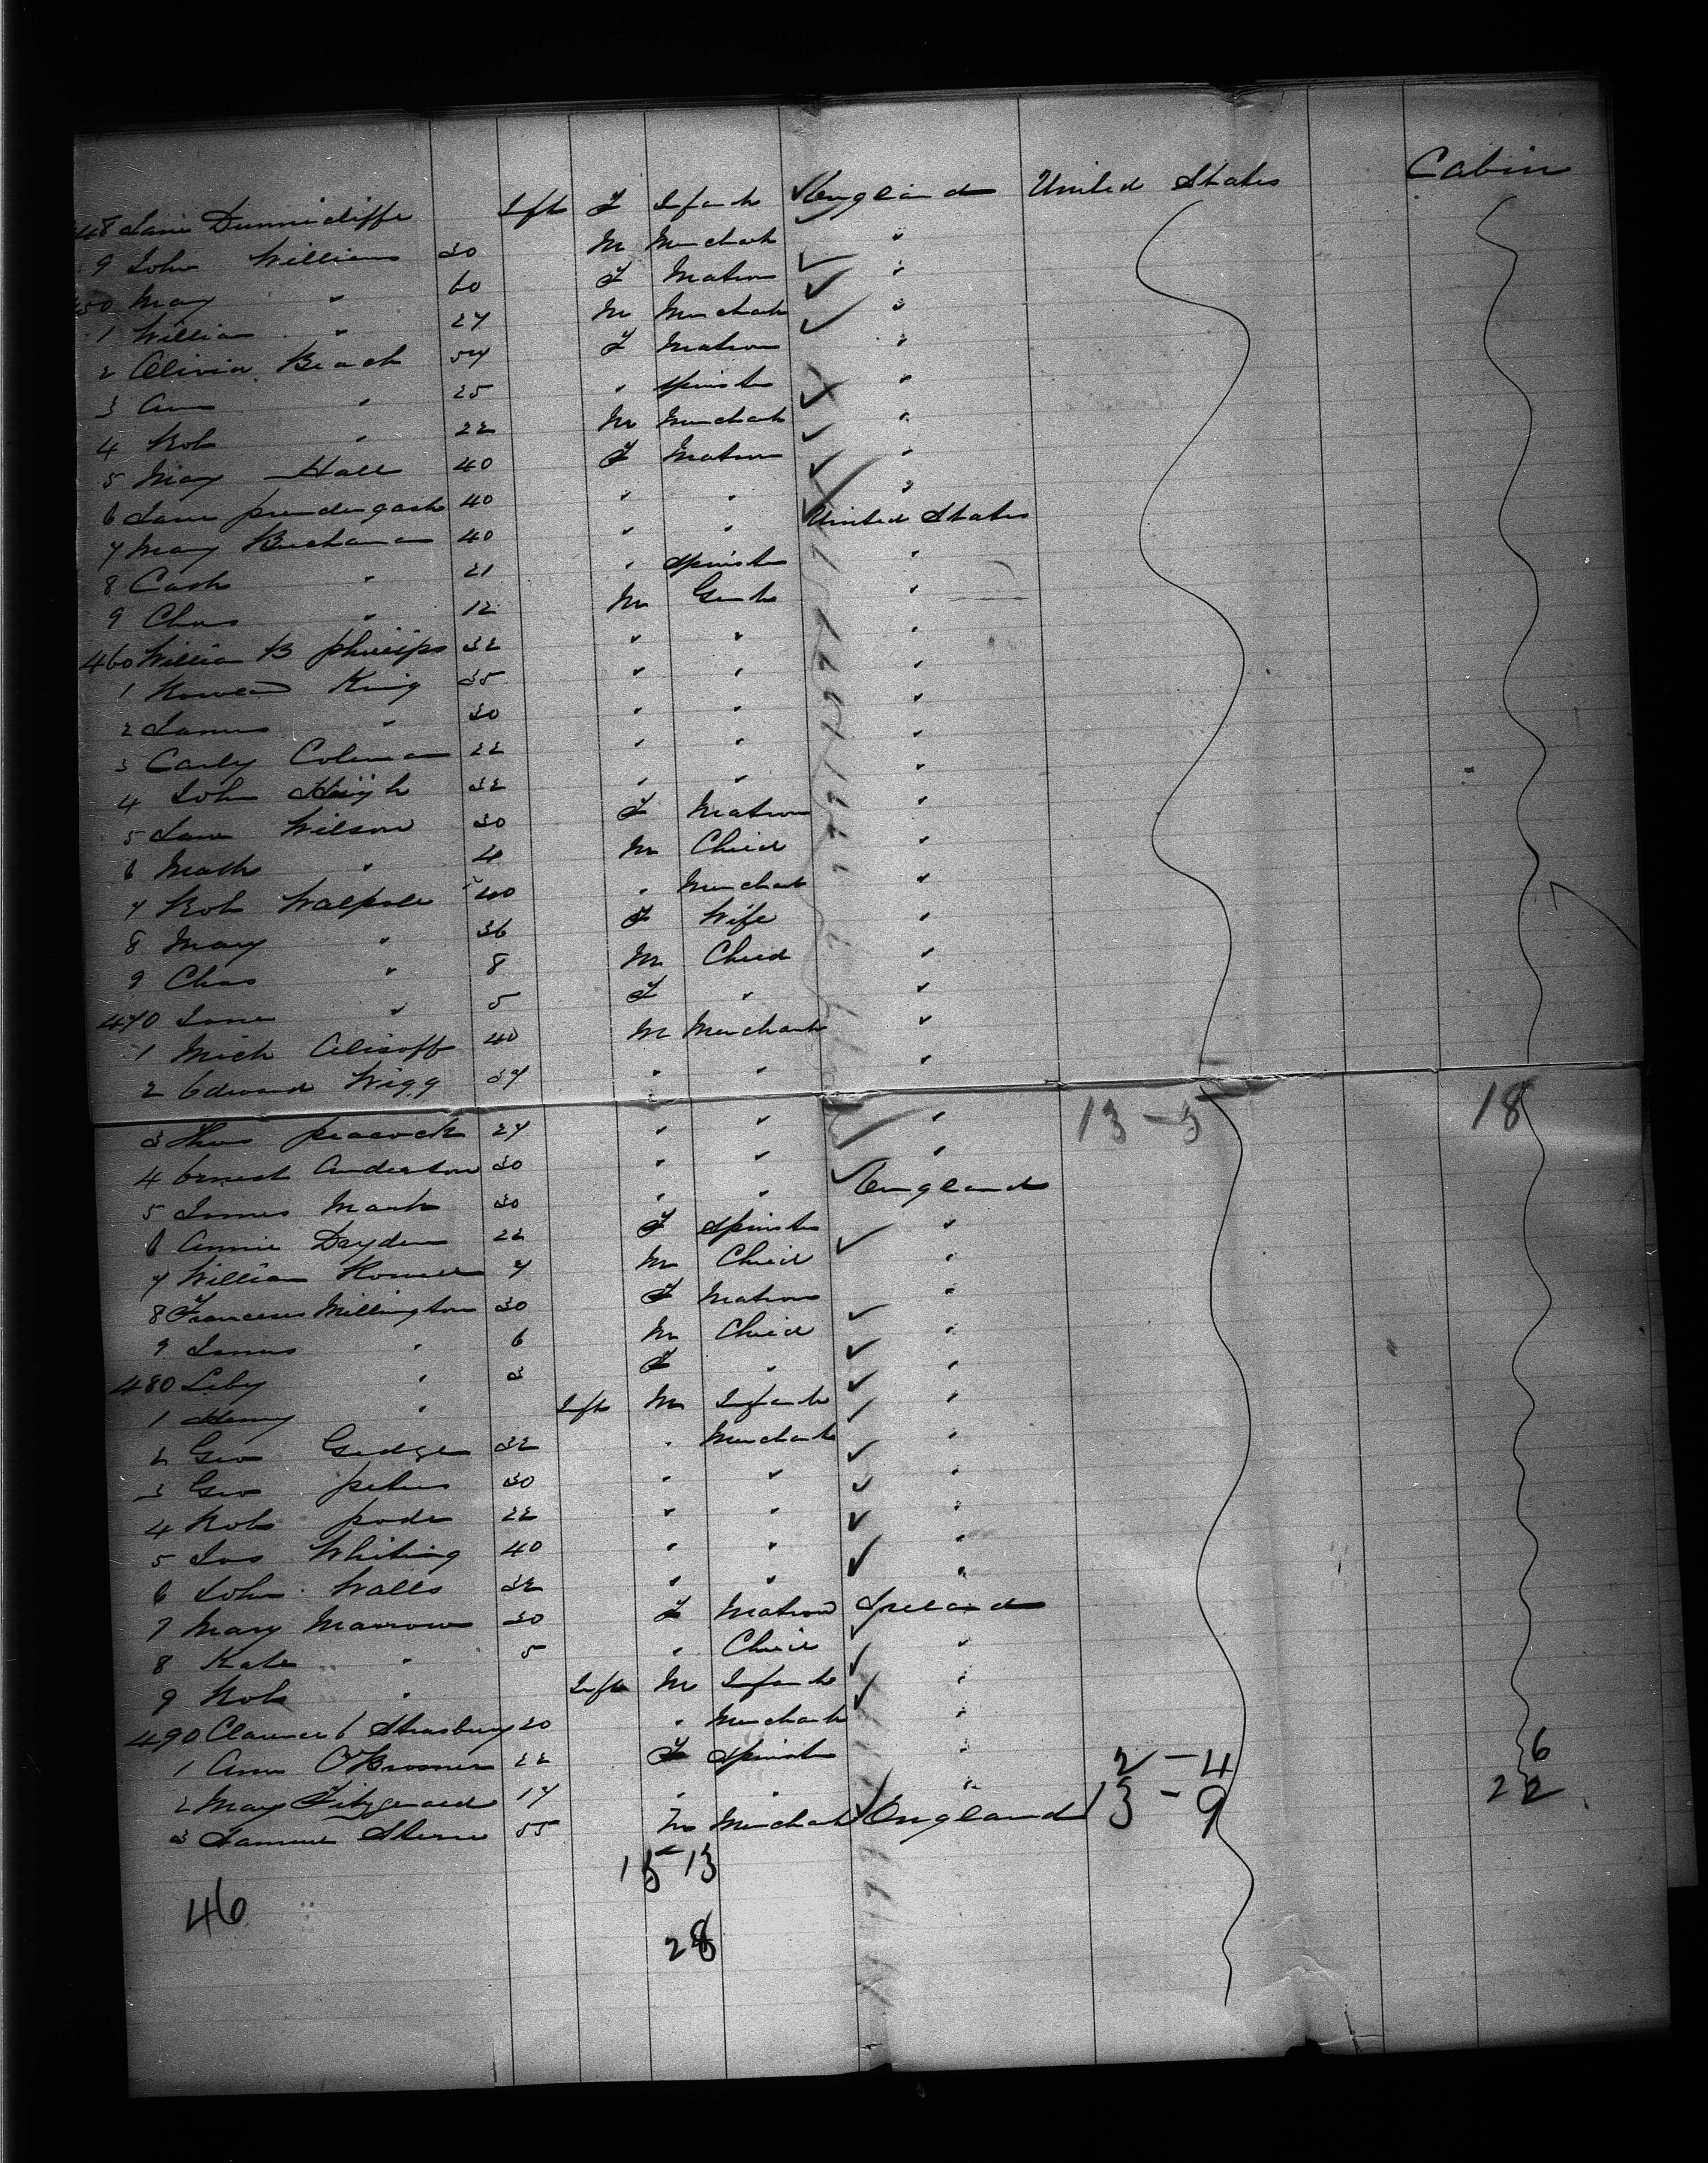 448 Jane Dunnicliffe Inft F Infant England United States Cabin
9 John Williams 30 M Merchant "
450 Mary " 60 F Matron "
1 William " 27 M Merchant "
2 Olivia Beach 54 F Matron "
3 Ann " 25 " Spinster "
4 Rob " 22 M Merchant "
5 Mary Hall 40 F Matron "
6 Jane Prendergast 40 " " "
7 Mary Buchanan 40 " " United States
8 Cath " 21 " Spinster "
9 Chas " 12 M Gent "
460 William B Phillips 32 " " "
1 Rowland King 35 " " "
2 James " 30 " " "
3 Carly Coleman 22 " " "
4 John Haigh 32 " " "
5 Jane Wilson 30 F Matron "
6 Math " 4 M Child "
7 Rob Walpole 40 " Merchant "
8 Mary " 36 F Wife "
9 Chas " 8 M Child "
470 Jane " 5 F " "
1 Mich Alisoff 40 M Merchant "
2 Edward Wigg 37 " " "
3 Thos Peacock 27 " " " 13-5 18
4 Ernest Anderton 30 " " "
5 James Mark 30 " " England
6 Annie Dryden 22 F Spinster "
7 William 7 M Child "
8 Frances Millington 30 F Matron "
9 James " 6 M Child "
480 Liby " 3 F " "
1 Henry " Inft M Infant "
2 Geo Gedge 32 " Merchant "
3 Geo Peters 30 " " "
4 Rob Pode 22 " " "
5 Jos Whiting 40 " " "
6 John Walls 32 " " "
7 Mary Marrow 30 F Matron Ireland
8 Kate " 5 " Child "
9 Rob " Inft M Infant "
490 Clarence E Strasbury 20 " Merchant "
1 Ann 22 F Spinster " 2-4 6
2 Mary Fitzgerald 17 " " " 13-9 22
3 Samuel Sterne 55 M Merchant England
15 13
46
28